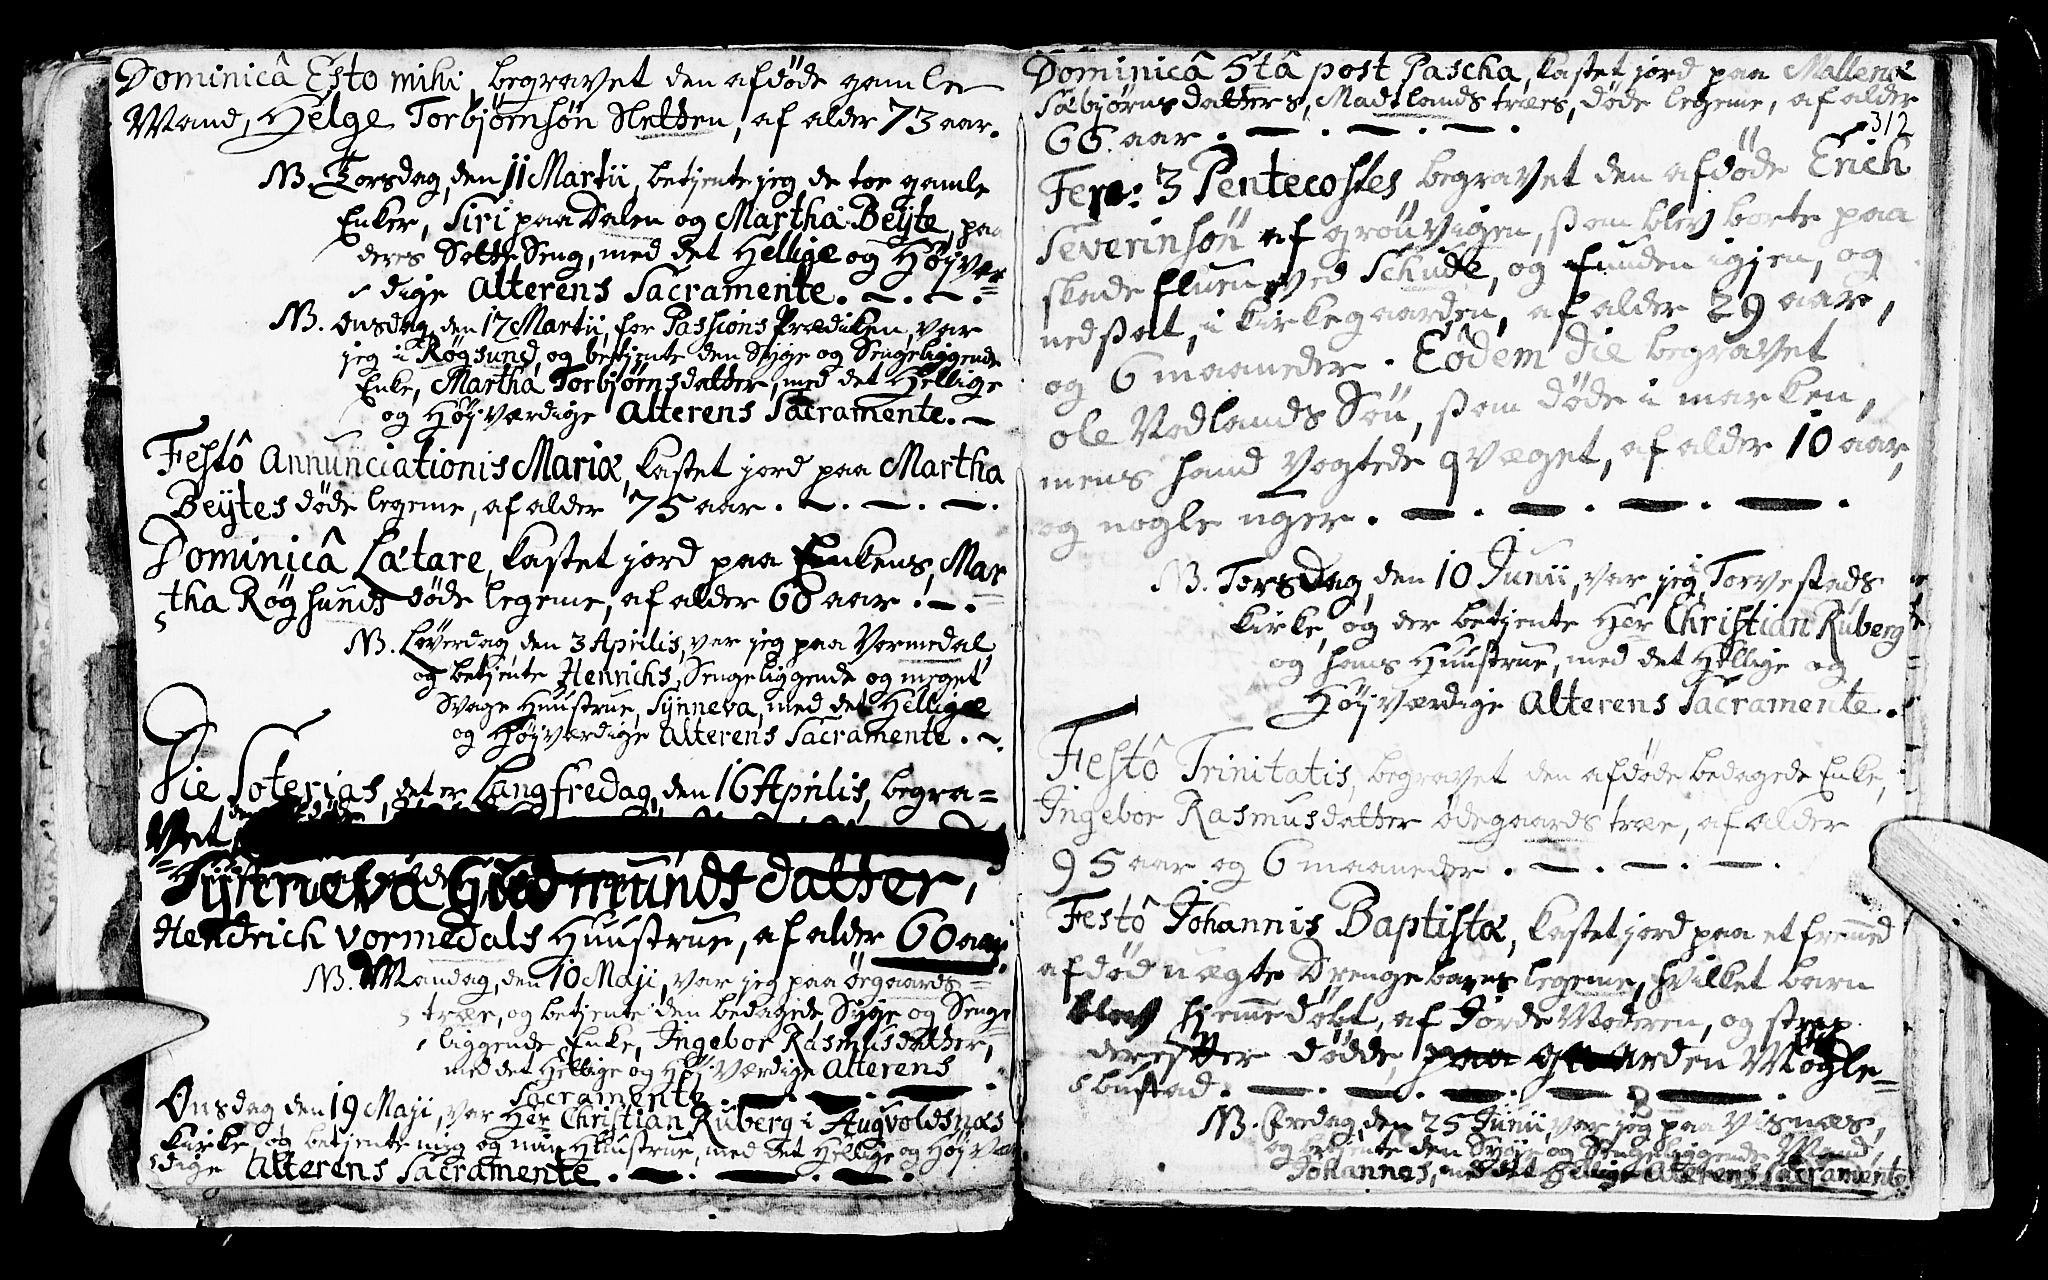 Dominicâ Esto mihi, begravet den afdöde gamle
Mand, Helge Torbjörnsön Sletten, af alder 73 aar.
NB. Torsdag, den 11 Martii, betjente jeg de toe gamle
Enker, Siri paa Dalen og Martha Beÿte, paa
deres Sotte Seng, med det Hellige og Höjvær=
dige Alterens Sacramente. —. —.
NB. Onsdag, den 17 Martii, for Passions Prædiken, var
jeg i Røgsund, og betjente den Syge og Sengeliggende
Enke, Martha Torbjørnsdatter, med det Hellige
og Høj-værdige Alterens Sacramente. —
Festô Annunciationis Mariæ, kastet jord paa Martha
Beÿtes döde legeme, af alder 75 aar. —. —. —.
Dominicâ Lætare, kastet jord paa Enkens, Mar=
tha Røgsunds döde legeme, af alder 60 aar. —.
NB. Løverdag, den 3 Aprilis, var jeg paa Vormedal,
og betjente Henrichs, Sengeliggende og meget
Svage Huustrue, Sÿnneva, med det Hellige
og Højværdige Alterens Sacramente. —.
Die Soterias, det er Langfredag, den 16 Aprilis, begra=
vet
Sÿnneva Gudmundsdatter,
Hendrich Vormedals Huustrue, af alder 60 aar.
NB. Mandag, den 10 Maji, var jeg paa Øegaards=
træe, og betjente den bedagede Syge og Senge=
liggende Enke, Ingebor Rasmusdatter,
med det Hellige og Høj-værdige Alterens
Sacramente. —. —. —.
Onsdag den 19 Maji, var Her Christian Ruberg i Augvoldsnæs
Kirke, og betjente mig og min Huustrue, med det Hellige og Højvær=
dige Alterens Sacramente. —. —. —.
Dominicâ 5tâ post Pascha, kastet jord paa Mallenæ
Sæbjørnsdatters, Madtlandstræes, döde legeme, af alder
66 aar. —. —. —.
312
Fer: 3 Pentecostes begravet den afdöde Erich
Severinsön af Grönvigen, som blev borte paa
ved Schude, og funden igjen, og
nedsat, i Kirkegaarden, af alder 29 aar,
og 6 maaneder. Eôdem die begravet
Ole Vodlands Sön, som döde i marken,
mens hand vogtede qvæget, af alder 10 aar,
og nogle uger. —. —. —. —.
NB. Torsdag, den 10 Junii, var jeg i Torvestads
Kirke, og der betjente Her Christian Ruberg
og hans Huustrue, med det Hellige og
Højværdige Alterens Sacramente.
Festô Trinitatis, begravet den afdöde bedagede Enke,
Ingebor Rasmusdatter Ødegaardstræe, af alder
95 aar og 6 maaneder. —. —. —.
Festô Johannis Baptistæ, kastet jord paa et fremmed
afdöd uægte Drengebarns legeme, hvilket barn
blev hjemmedöbt, af Jorde Moderen, og strax
derester dödde, paa gaarden Mögle=
bustad. —. —. —. —. —.
NB. Fredag, den 25 Junii, var jeg paa Visnæs,
og betjente den Syge og Sengeliggende Mand,
Johannes, med det Hellige Alterens Sacramente.